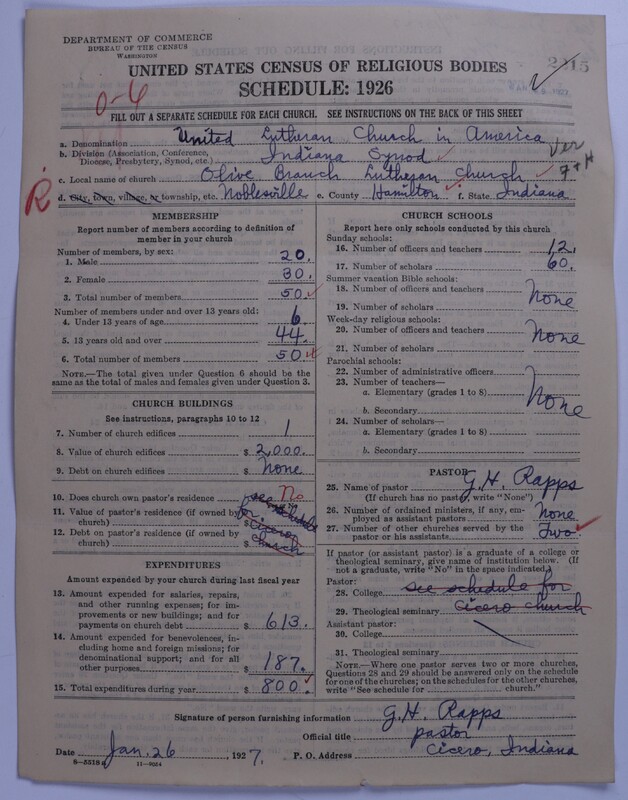 DEPARTMENT OF COMMERCE
BUREAU OF THE CENSUS
WASHINGTON
UNITED STATES CENSUS OF RELIGIOUS BODIES
SCHEDULE: 1926
0-6
FILL OUT A SEPARATE SCHEDULE FOR EACH CHURCH. SEE INSTRUCTIONS ON THE BACK OF THIS SHEET
a. Denomination United Lutheran Church in America
b. Division (Association, Conference, Diocese, Presbytery, Synod, etc.) Indiana Synod Ver
c. Local name of church Olive Branch Lutheran Church 7+H
R d. City, town, village, or township, etc. Noblesville e. County Hamilton f. State Indiana
MEMBERSHIP
Report number of members according to definition of member in your church
Number of members, by sex:
1. Male 20.
2. Female 30.
3. Total number of members 50
Number of members under and over 13 years old:
4. Under 13 years of age 6
5. 13 years old and over 44
6. Total number of members 50
NOTE.—The total given under Question 6 should be the same as the total of males and females given under Question 3.
CHURCH BUILDINGS
See instructions, paragraphs 10 to 12
7. Number of church edifices 1
8. Value of church edifices $ 2,000.
9. Debt on church edifices $ None
10. Does church own pastor's residence No
11. Value of pastor's residence (if owned by church) $ see schedule for
12. Debt on pastor's residence (if owned by church) $ Cicero church
EXPENDITURES
Amount expended by your church during last fiscal year
13. Amount expended for salaries, repairs, and other running expenses; for improvements or new buildings; and for payments on church debt $ 613.
14. Amount expended for benevolences, including home and foreign missions; for denominational support; and for all other purposes $ 187.
15. Total expenditures during year $ 800.
CHURCH SCHOOLS
Report here only schools conducted by this church
Sunday schools:
16. Number of officers and teachers 12.
17. Number of scholars 60.
Summer vacation Bible schools:
18. Number of officers and teachers
19. Number of scholars None
Week-day religious schools:
20. Number of officers and teachers None
21. Number of scholars
Parochial schools:
22. Number of administrative officers
23. Number of teachers—
a. Elementary (grades 1 to 8) None
b. Secondary
24. Number of scholars—
a. Elementary (grades 1 to 8)
b. Secondary
PASTOR
25. Name of pastor G. H. Rapps
(If church has no pastor, write "None")
26. Number of ordained ministers, if any, employed as assistant pastors None
27. Number of other churches served by the pastor or his assistants Two
If pastor (or assistant pastor) is a graduate of a college or theological seminary, give name of institution below. (If not a graduate, write "No" in the space indicated.)
Pastor:
28. College see schedule for
29. Theological seminary Cicero church
Assistant pastor:
30. College
31. Theological seminary
NOTE.—Where one pastor serves two or more churches, Questions 28 and 29 should be answered only on the schedule for one of the churches; on the schedules for the other churches, write "See schedule for church."
Signature of person furnishing information G. H. Rapps
Official title pastor
Date Jan. 26 1927. P. O. Address Cicero, Indiana
8-5518a 11-9664